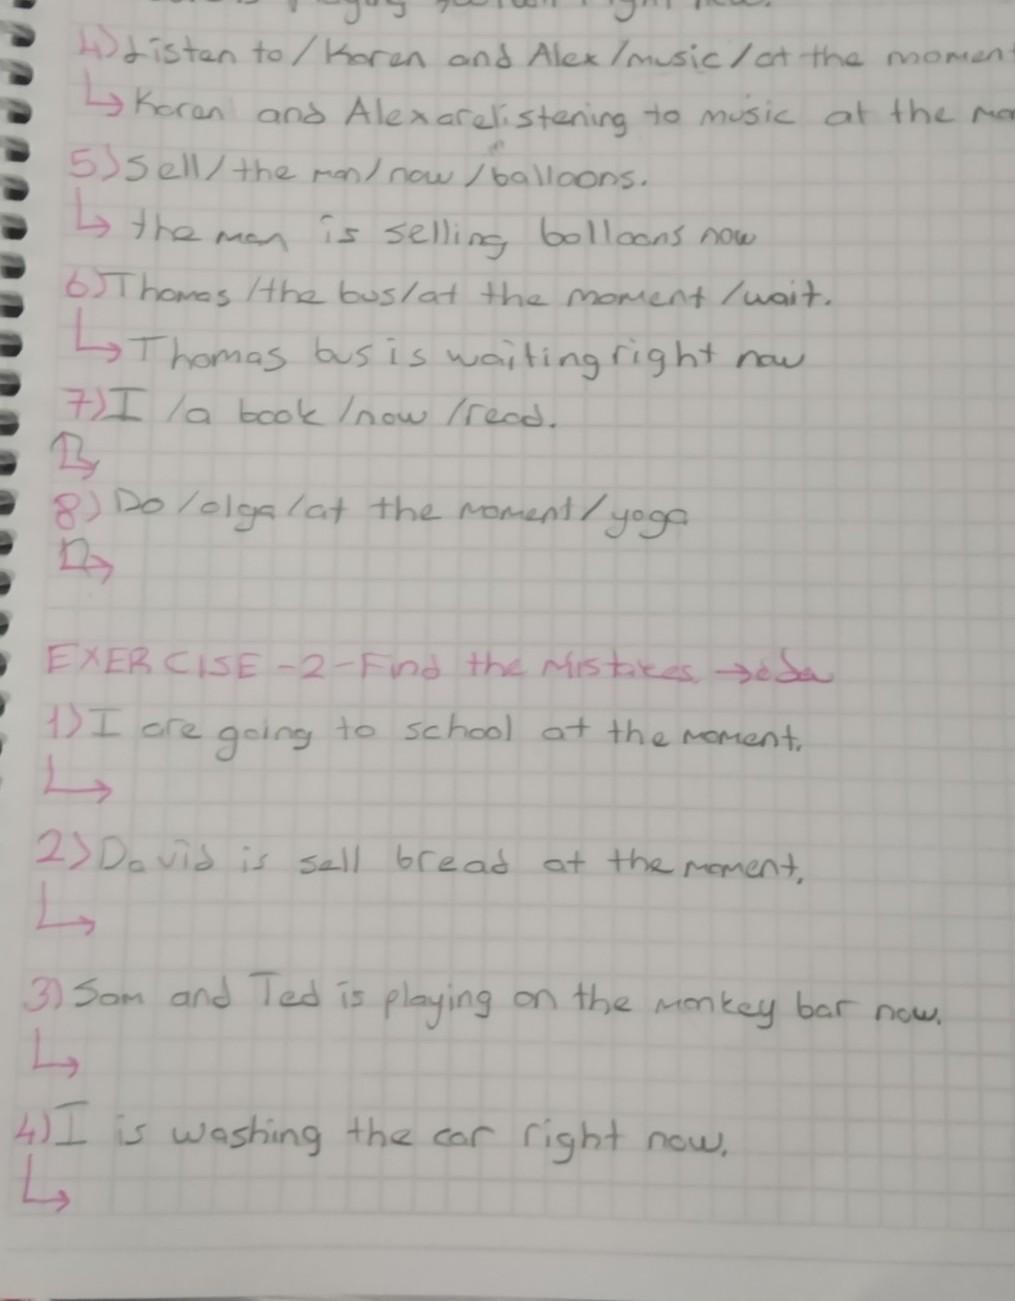 playing right now.
4) Listen to / Karen and Alex / music / at the moment
Karen and Alex are listening to music at the mo
5) Sell / the man / now / balloons.
the man is selling balloons now
6) Thomas / the bus / at the moment / wait.
Thomas bus is waiting right now
7) I / a book / now / read.
8) Do / olga / at the moment / yoga
EXERCISE -2- Find the Mistakes
1) I are going to school at the moment.
2) David is sell bread at the moment.
3) Sam and Ted is playing on the monkey bar now.
4) I is washing the car right now.